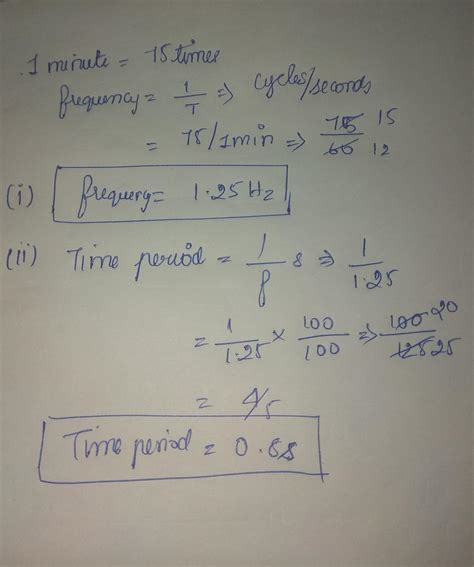 1 minute = 75 times
frequency = 1/T => cycles/seconds
= 75/1min => 75/60 15 12
(i) frequency = 1.25 Hz
(ii) Time period = 1/f s => 1/1.25
= 1/1.25 × 100/100 => 100/125 20 25
= 4/5
Time period = 0.8s